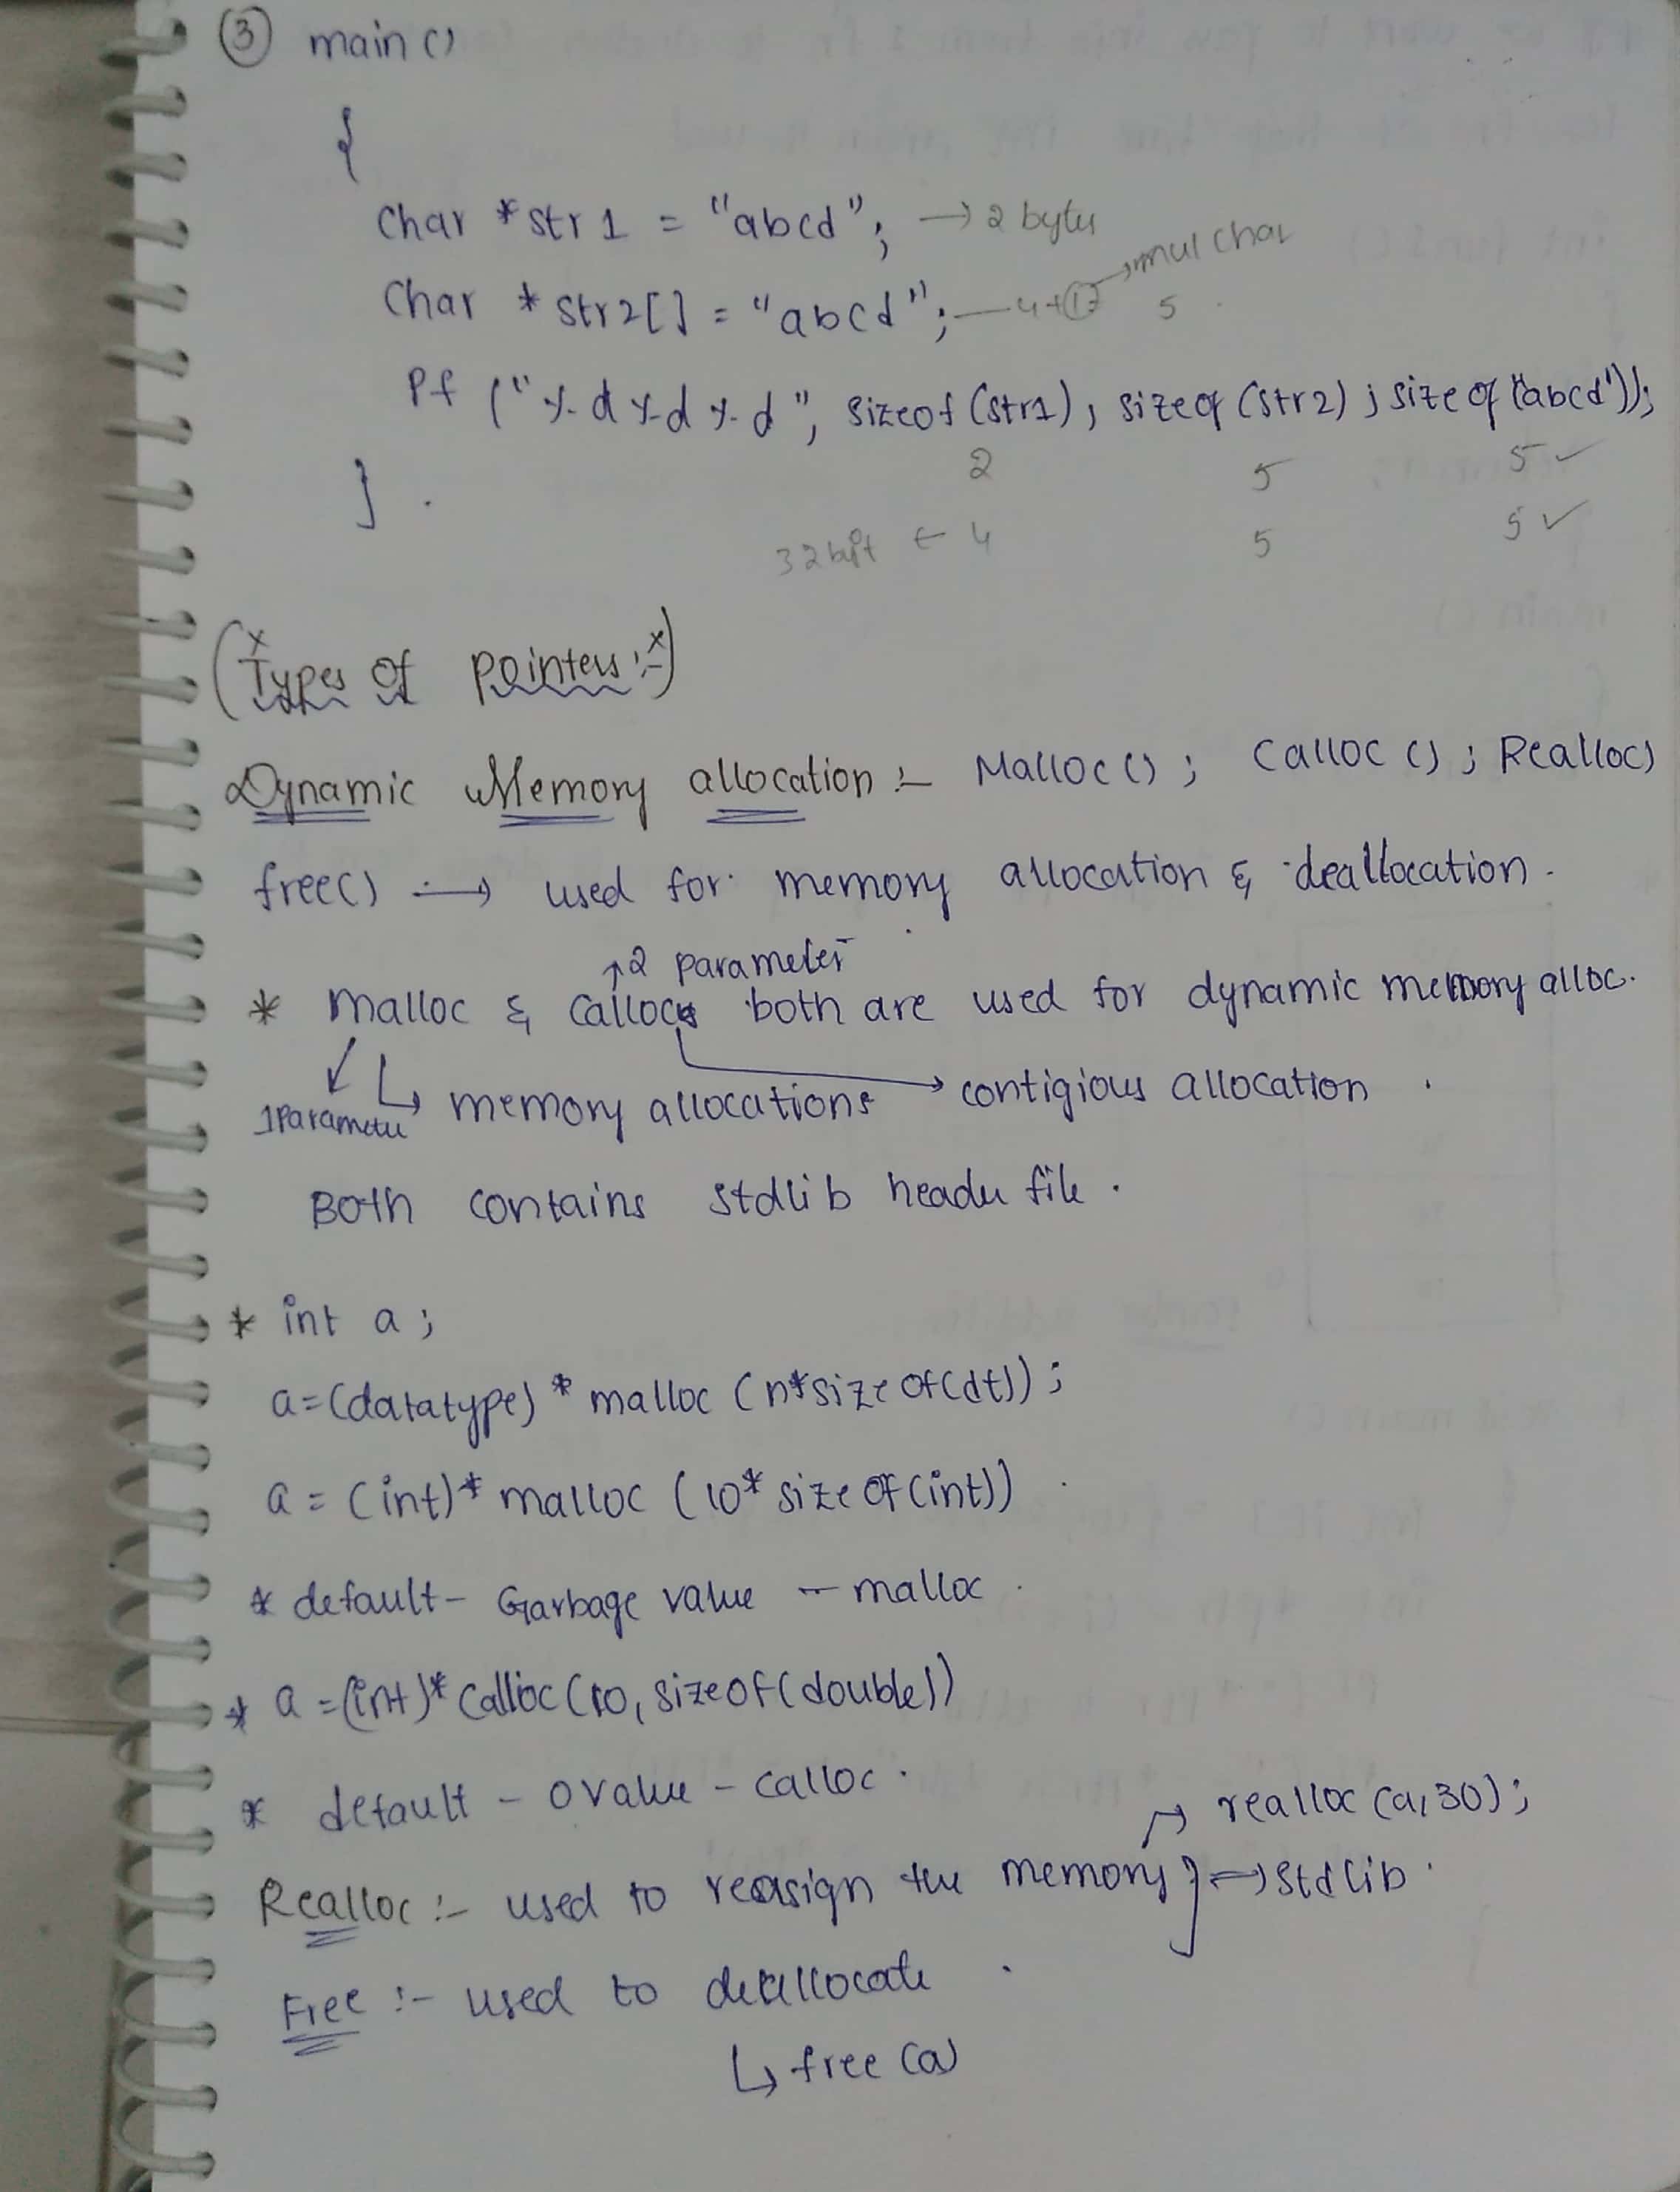 ③ main()
{
char *str1 = "abcd"; → 2 bytes
char *str2[] = "abcd"; — 4+① → nul char 5
Pf ("%d %d %d", sizeof(str1), sizeof(str2), sizeof("abcd"));
2 5 5 ✓
} .
32bit ← 4 5 5 ✓
(Types of Pointers :-)
Dynamic Memory allocation :- Malloc(); Calloc(); Realloc)
free() → used for memory allocation & deallocation.
↑2 parameter
* malloc & calloc both are used for dynamic memory alloc.
1Parameter ↳ memory allocations → contigious allocation .
Both contains stdlib header file .
* int a ;
a=(datatype) * malloc (n*sizeof(dt)) ;
a = (int)* malloc (10* sizeof(int)) .
* default - Garbage value - malloc .
* a =(int)* calloc (10, sizeof(double))
* default - 0 value - calloc .
→ realloc (a,30);
Realloc :- used to reassign the memory } → stdlib .
Free :- used to deallocate .
↳ free (a)